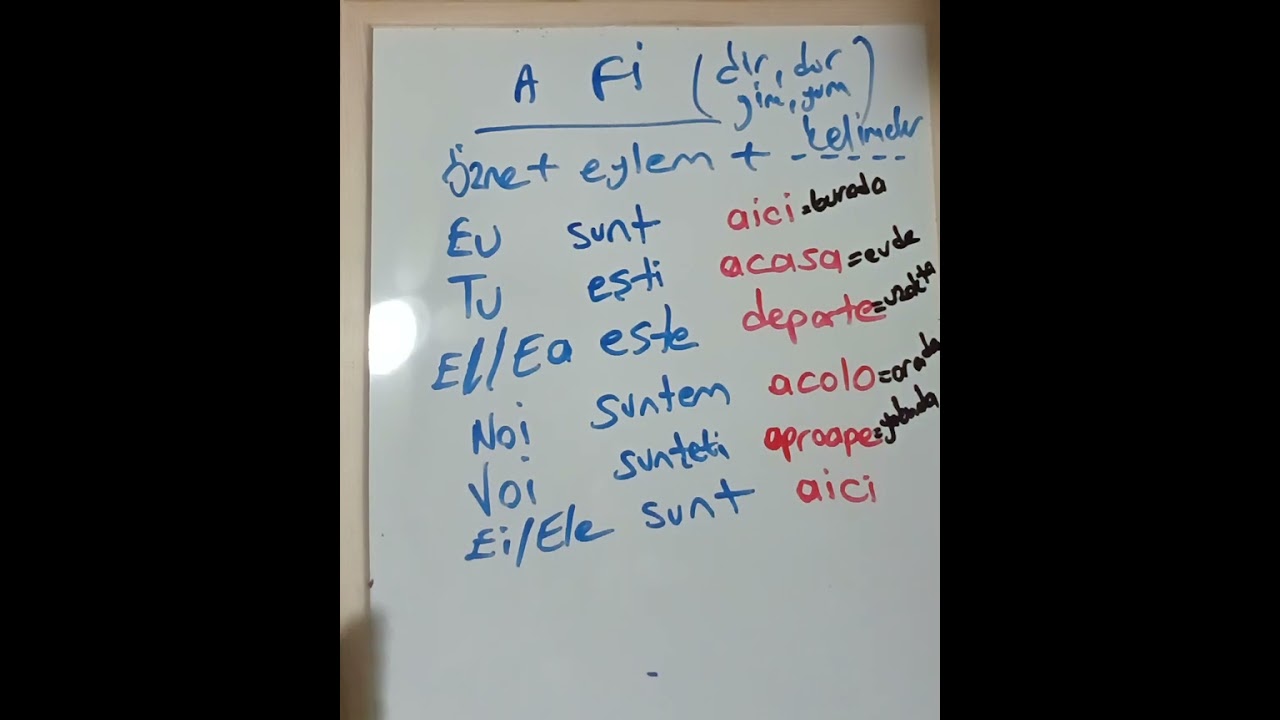 A Fi (dır, dur
gim, yum)
Özne + eylem + kelimeler
-----
Eu sunt aici = burada
Tu ești acasa = evde
El//Ea este departe = uzakta
Noi suntem acolo = orada
Voi sunțeti aproape = yakında
Ei/Ele sunt aici